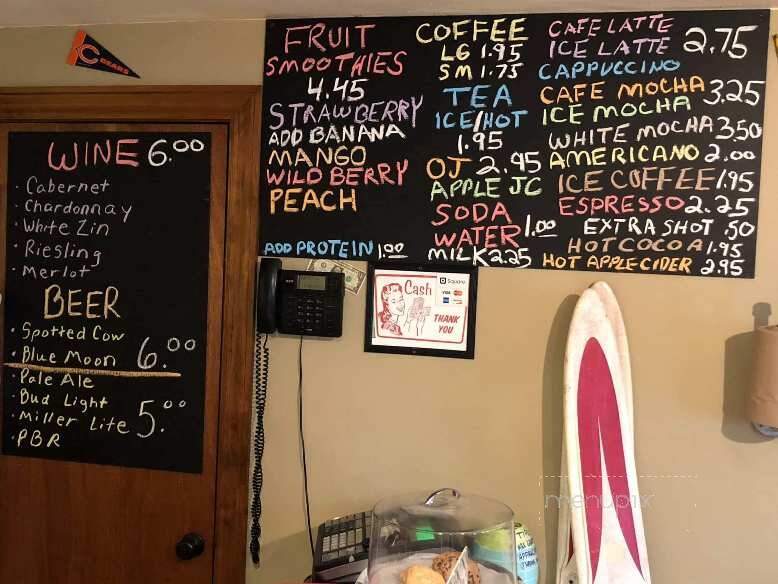 BEARS
WINE 6.00
· Cabernet
· Chardonnay
· White Zin
· Riesling
· Merlot
BEER
· Spotted Cow
· Blue Moon 6.00
· Pale Ale
· Bud Light
· Miller Lite 5.00
· PBR
FRUIT
SMOOTHIES
4.45
STRAWBERRY
ADD BANANA
MANGO
WILD BERRY
PEACH
ADD PROTEIN 1.00
COFFEE
LG 1.95
SM 1.75
TEA
ICE/HOT
1.95
OJ 2.95
APPLE JC
SODA
WATER 1.00
MILK 2.25
CAFE LATTE
ICE LATTE 2.75
CAPPUCCINO
CAFE MOCHA 3.25
ICE MOCHA
WHITE MOCHA 3.50
AMERICANO 2.00
ICE COFFEE 1.95
ESPRESSO 2.25
EXTRA SHOT .50
HOT COCOA 1.95
HOT APPLE CIDER 2.95
Cash
Square
VISA
THANK
YOU
menupix